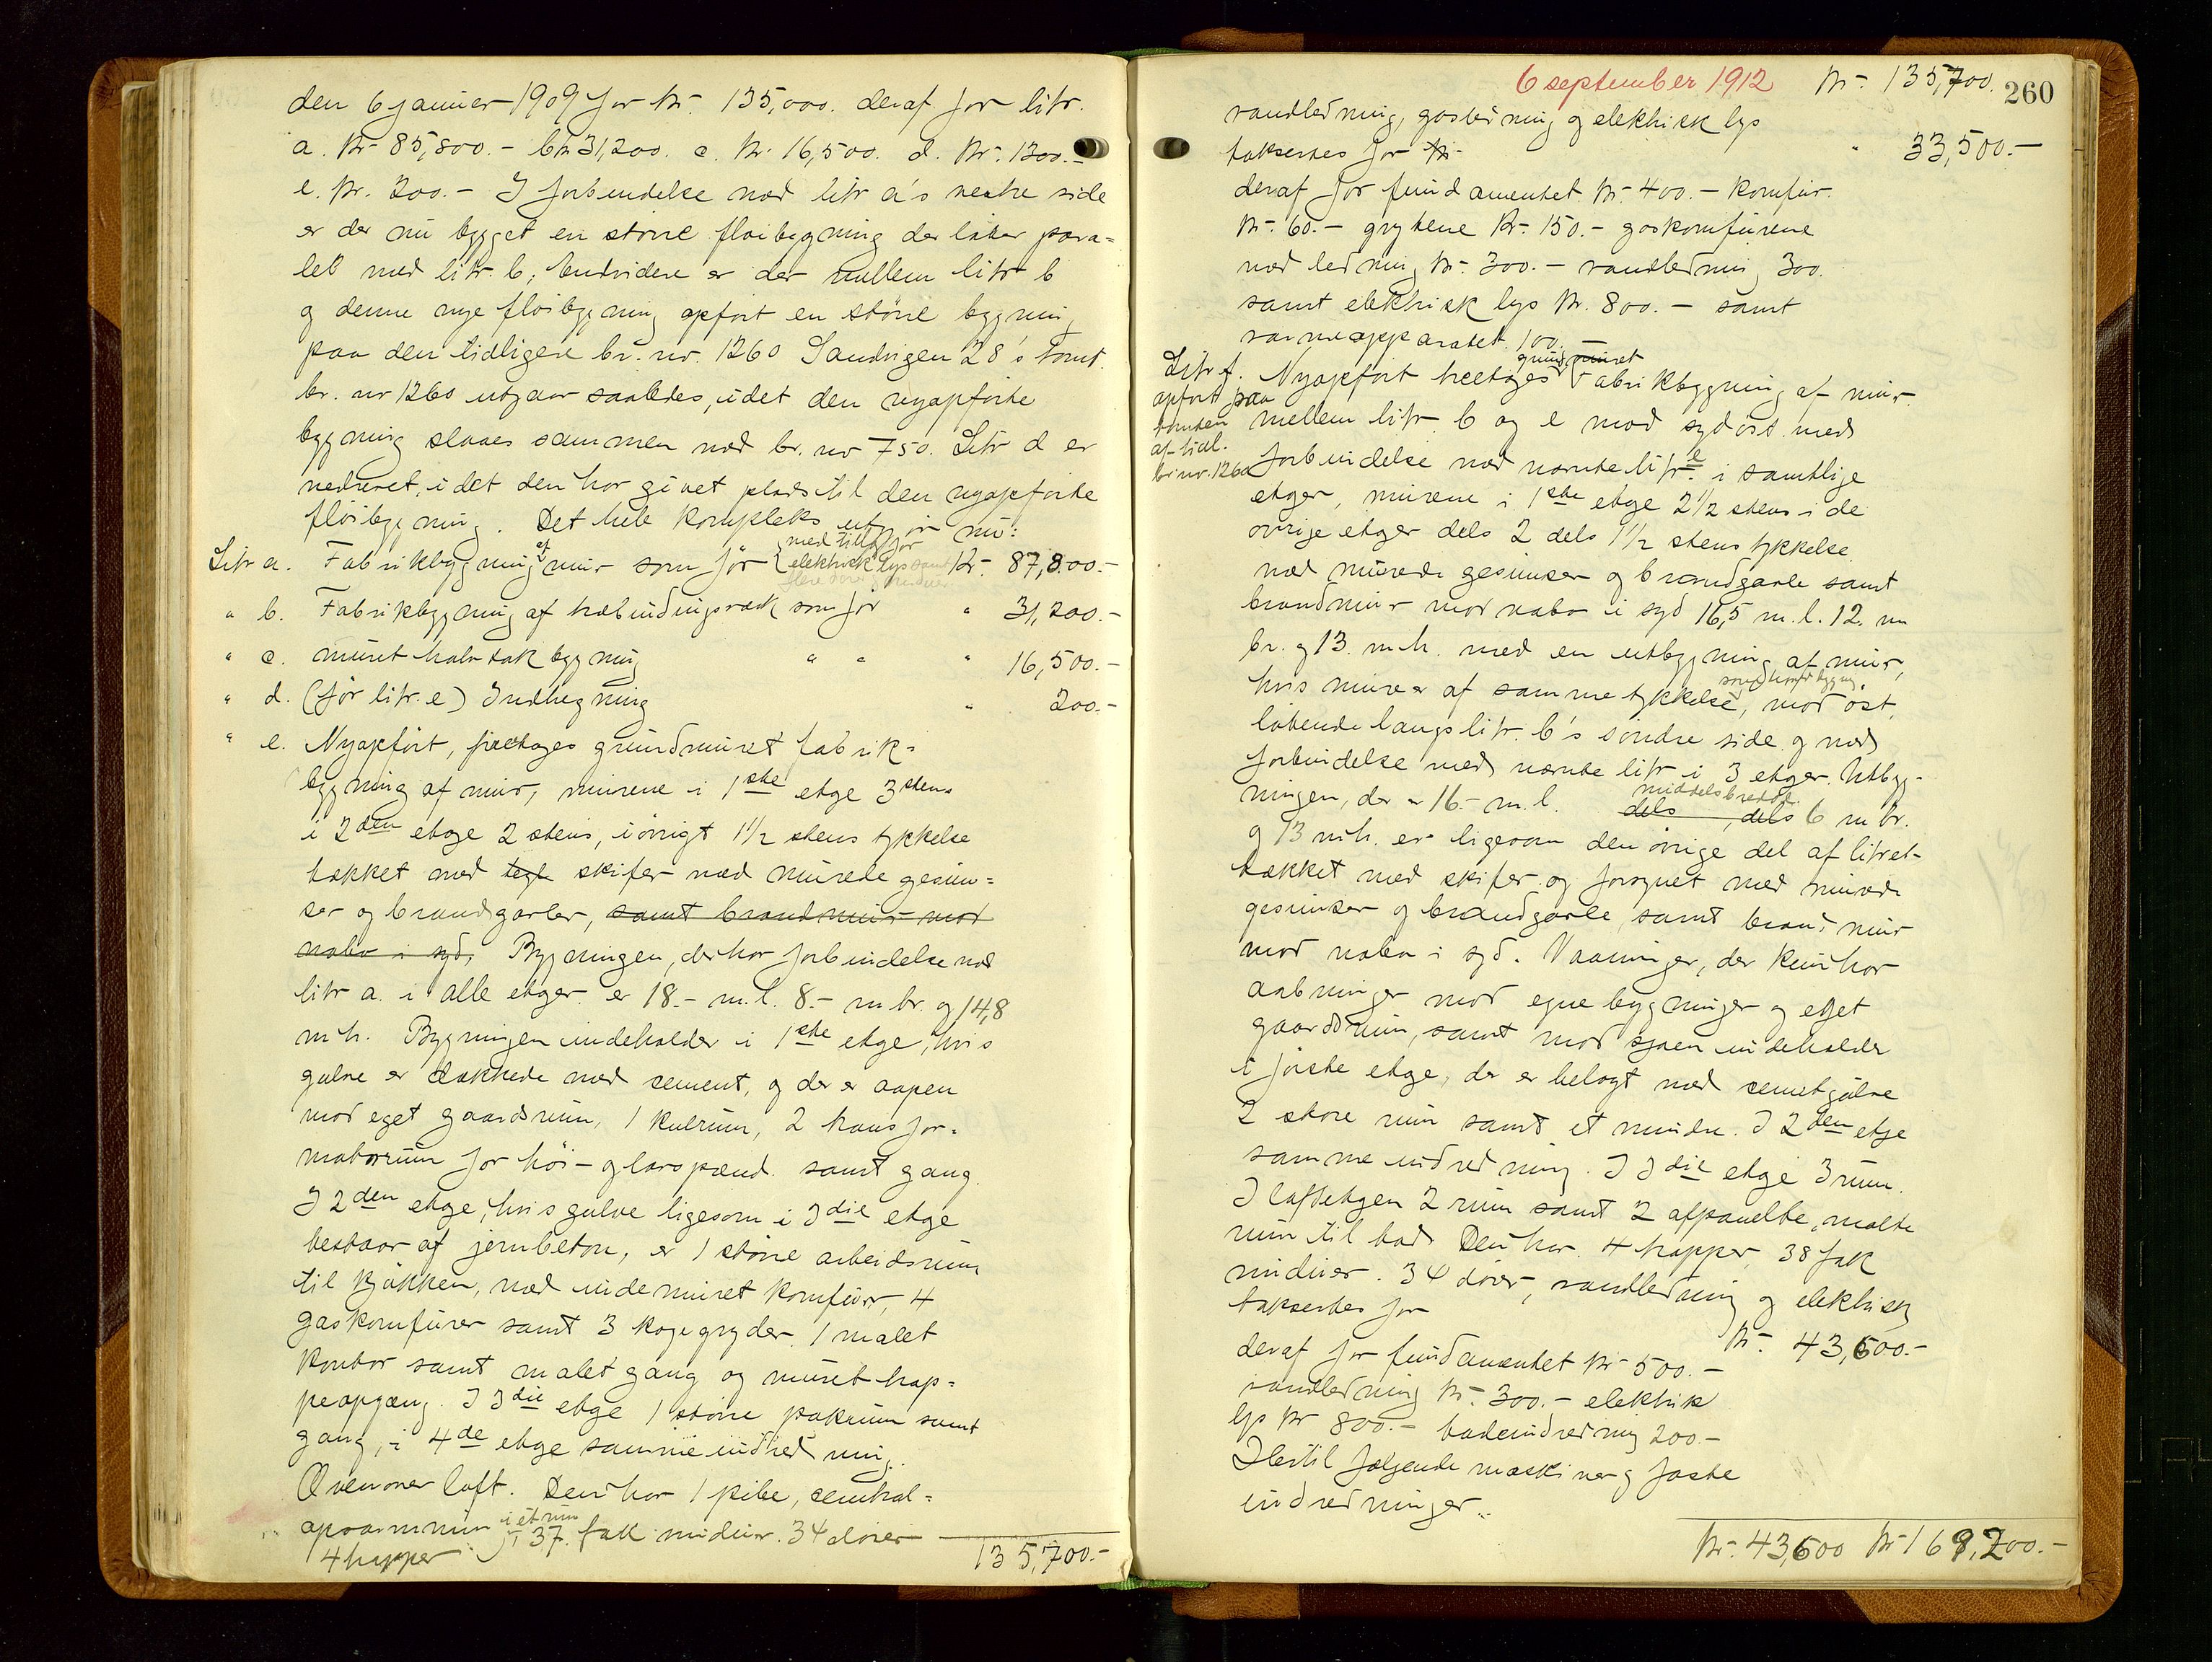 den 6 januer 1909 for kr. 135,000. deraf for litr.
a. Kr. 85,800.- b. kr 31,200. c. Kr. 16,500. d. Kr. 1300.-
e. kr. 200.- I forbindelse med litr a's vestre side
er der nu bygget en större flöibygning der löber para=
lel med litr. b; Endvidere er der mellem litr b
og denne nye flöibygning opfört en större bygning
paa den tidligere br. nr. 1260 Sandvigen 28's tomt.
br. nr 1260 utgaar saaledes, idet den nyopförte
bygning slaaes sammen med br. nr 750. Litr d er
nedrevet, idet den har givet plads til den nyopförte
flöibygning. Det hele kompleks utgjör nu:
Litr a. Fabrikbygning af mur som för {med tillæg for elektrisk lys samt flere döre og vinduer Kr. 87,800.-
" b. Fabrikbygning af træbindingsværk som för " 31,200.-
" c. muret halvtak bygning " " " 16,500.-
" d. (för litr. e) Indhegning " 200.-
" e. Nyopfört, firetages grundmuret fabrik=
bygning af mur, murene i 1ste etage 3 stens
i 2den etage 2 stens, iövrigt 1½ stens tykkelse
tækket med tegl skifer med murede gesim=
ser og brandgavler, samt brandmur mod
nabo i syd, Bygningen, der har forbindelse med
litr a. i alle etager er 18.- m.l. 8.- m br. og 14,8
m h. Bygningen indeholder i 1ste etage, hvis
gulve er dækkede med cement, og der er aapen
mod eget gaardsrum, 1 kulrum, 2 transfor=
matorrum for höi- og lavspænd. samt gang.
I 2den etage, hvis gulve ligesom i 3die etage
bestaar af jernbeton, er 1 större arbeidsrum
til kjökken, med indemuret komfur, 4
gaskomfurer samt 3 kogegryder, 1 malet
kontor samt malet gang og muret trap=
peopgang. I 3die etage 1 större pakrum samt
gang, i 4de etage samme indredning.
Ovenover loft. Den har 1 pibe, central=
opvarmning i et rum, 37 fak vinduer. 34 dörer
4 trapper 135,700.-
6 september 1912 Kr. 135,700. 260
vandledning, gasledning og elektrisk lys
takseres for kr " 33,500.-
deraf for fundamentet kr. 400.- komfur.
kr. 60.- grytene Kr. 150.- gaskomfurene
med ledning kr. 300.- vandledning 300.
samt elektrisk lys kr. 800.- samt
varmeapparatet 100.-
Litr f. Nyopfört treetages grundmuret fabrikbygning af mur
opfört paa tomten af tidl. br nr. 1260
mellem litr b og e mod sydöst med
forbindelse med nævnte litr. e i samtlige
etager, murene i 1ste etage 2½ stens i de
övrige etager dels 2 dels 1½ stens tykkelse
med murede gesimser og brandgavle samt
brandmur mod nabo i syd 16,5 m.l. 12. m
br. og 13. m h. med en utbygning af mur,
hvis mure er af samme tykkelse som hovedbygning, mod öst,
löbende langs litr. b's söndre side og med
forbindelse med nævnte litr i 3 etager. Utbyg-
ningen, der er 16.- m.l. dels , dels middelsbredde 6 m br.
og 13 m h. er ligesom den övrige del af litret
tækket med skifer og forsynet med murede
gesimser og brandgavle, samt brandmur
mod nabo i syd. Vaaninger, der kun har
aabninger mod egne bygninger og eget
gaardsrum, samt mod sjöen indeholder
i förste etage, der er belagt med cementgulve
2 store rum samt et mindre. I 2den etage
samme indredning. I 3die etage 3 rum.
I loftetagen 2 rum samt 2 afpanelte, malte
rum til bad. Den har 4 trapper, 38 fak
vinduer. 34 dörer, vandledning og elektrisk
takseres for Kr. 43,600.-
deraf for fundamentet kr 500.-
vandledning kr. 300.- elektrisk
lys kr 800.- badeindredning 200.-
Hertil følgende maskiner og faste
indredninger.
Kr. 43,600 Kr 169,200.-